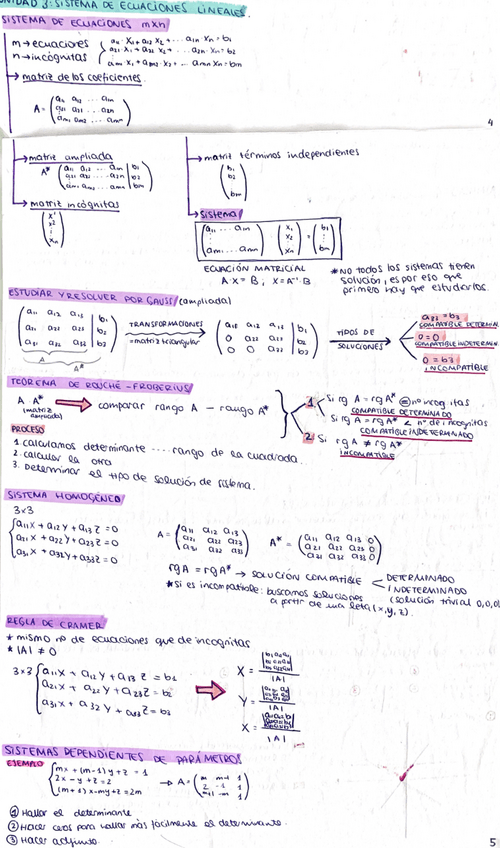 UNIDAD 3: SISTEMA DE ECUACIONES LINEALES.
SISTEMA DE ECUACIONES m×n
m → ecuaciones
n → incógnitas
a11 · X1 + a12 X2 + ... a1n Xn = b1
a21 · X1 + a22 X2 + ... a2n · Xn = b2
am1 · X1 + am2 · X2 + ... amn Xn = bm
→ matriz de los coeficientes.
A = ( a11 a12 ... a1n
a21 a22 ... a2n
am1 am2 ... amn )
4
→ matriz ampliada
A* ( a11 a12 ... a1n | b1
a21 a22 ... a2n | b2
am1 am2 ... amn | bm )
→ matriz términos independientes
( b1
b2
⋮
bm )
→ matriz incógnitas
( x1
x2
⋮
xn )
→ sistema
( a11 ... a1n
⋮
am1 ... amn ) · ( x1
x2
⋮
xn ) = ( b1
⋮
bm )
ECUACIÓN MATRICIAL
A · X = B , X = A⁻¹ · B
* NO todos los sistemas tienen
solución, es por eso que
primero hay que estudiarlos.
ESTUDIAR Y RESOLVER POR GAUSS (ampliada)
( a11 a12 a13 | b1
a21 a22 a23 | b2
a31 a32 a33 | b3 )
A
A*
TRANSFORMACIONES
= matriz triangular
( a11 a12 a13 | b1
0 a22 a23 | b2
0 0 a33 | b3 )
TIPOS DE
SOLUCIONES
a33 = b3
COMPATIBLE DETERMIN.
0 = 0
COMPATIBLE INDETERMIN.
0 = b3
INCOMPATIBLE
TEOREMA DE ROUCHÉ - FROBENIUS
A A*
(matriz
ampliada)
comparar rango A - rango A*
1 Si rg A = rg A* = nº incognitas
COMPATIBLE DETERMINADO
Si rg A = rg A* < nº de incognitas
COMPATIBLE INDETERMINADO
2 Si rg A ≠ rg A*
INCOMPATIBLE
PROCESO
1. calculamos determinante ---- rango de la cuadrada.
2. calcular la otra
3. Determinar el tipo de solución de sistema.
SISTEMA HOMOGÉNEO
3×3
a11 x + a12 y + a13 z = 0
a21 x + a22 y + a23 z = 0
a31 x + a32 y + a33 z = 0
A = ( a11 a12 a13
a21 a22 a23
a31 a32 a33 )
A* = ( a11 a12 a13 0
a21 a22 a23 0
a31 a32 a33 0 )
rg A = rg A* → SOLUCIÓN COMPATIBLE < DETERMINADO
INDETERMINADO
(solución trivial 0,0,0)
* Si es incompatible: buscamos soluciones
a partir de una letra (x, y, z).
REGLA DE CRAMER
* mismo nº de ecuaciones que de incognitas
* |A| ≠ 0
3×3
a11 x + a12 y + a13 z = b1
a21 x + a22 y + a23 z = b2
a31 x + a32 y + a33 z = b3
X =
|A|
Y =
|A|
X =
|A|
SISTEMAS DEPENDIENTES DE PARÁMETROS
EJEMPLO
mx + (m-1) y + z = 1
2x - y + z = 2
(m+1) x - my + z = 2m
→ A = ( m m-1 1
2 -1 1
m+1 -m 1 )
① Hallar el determinante
② Hacer ceros para hallar más fácilmente el determinante.
③ Hacer adjunto.
5